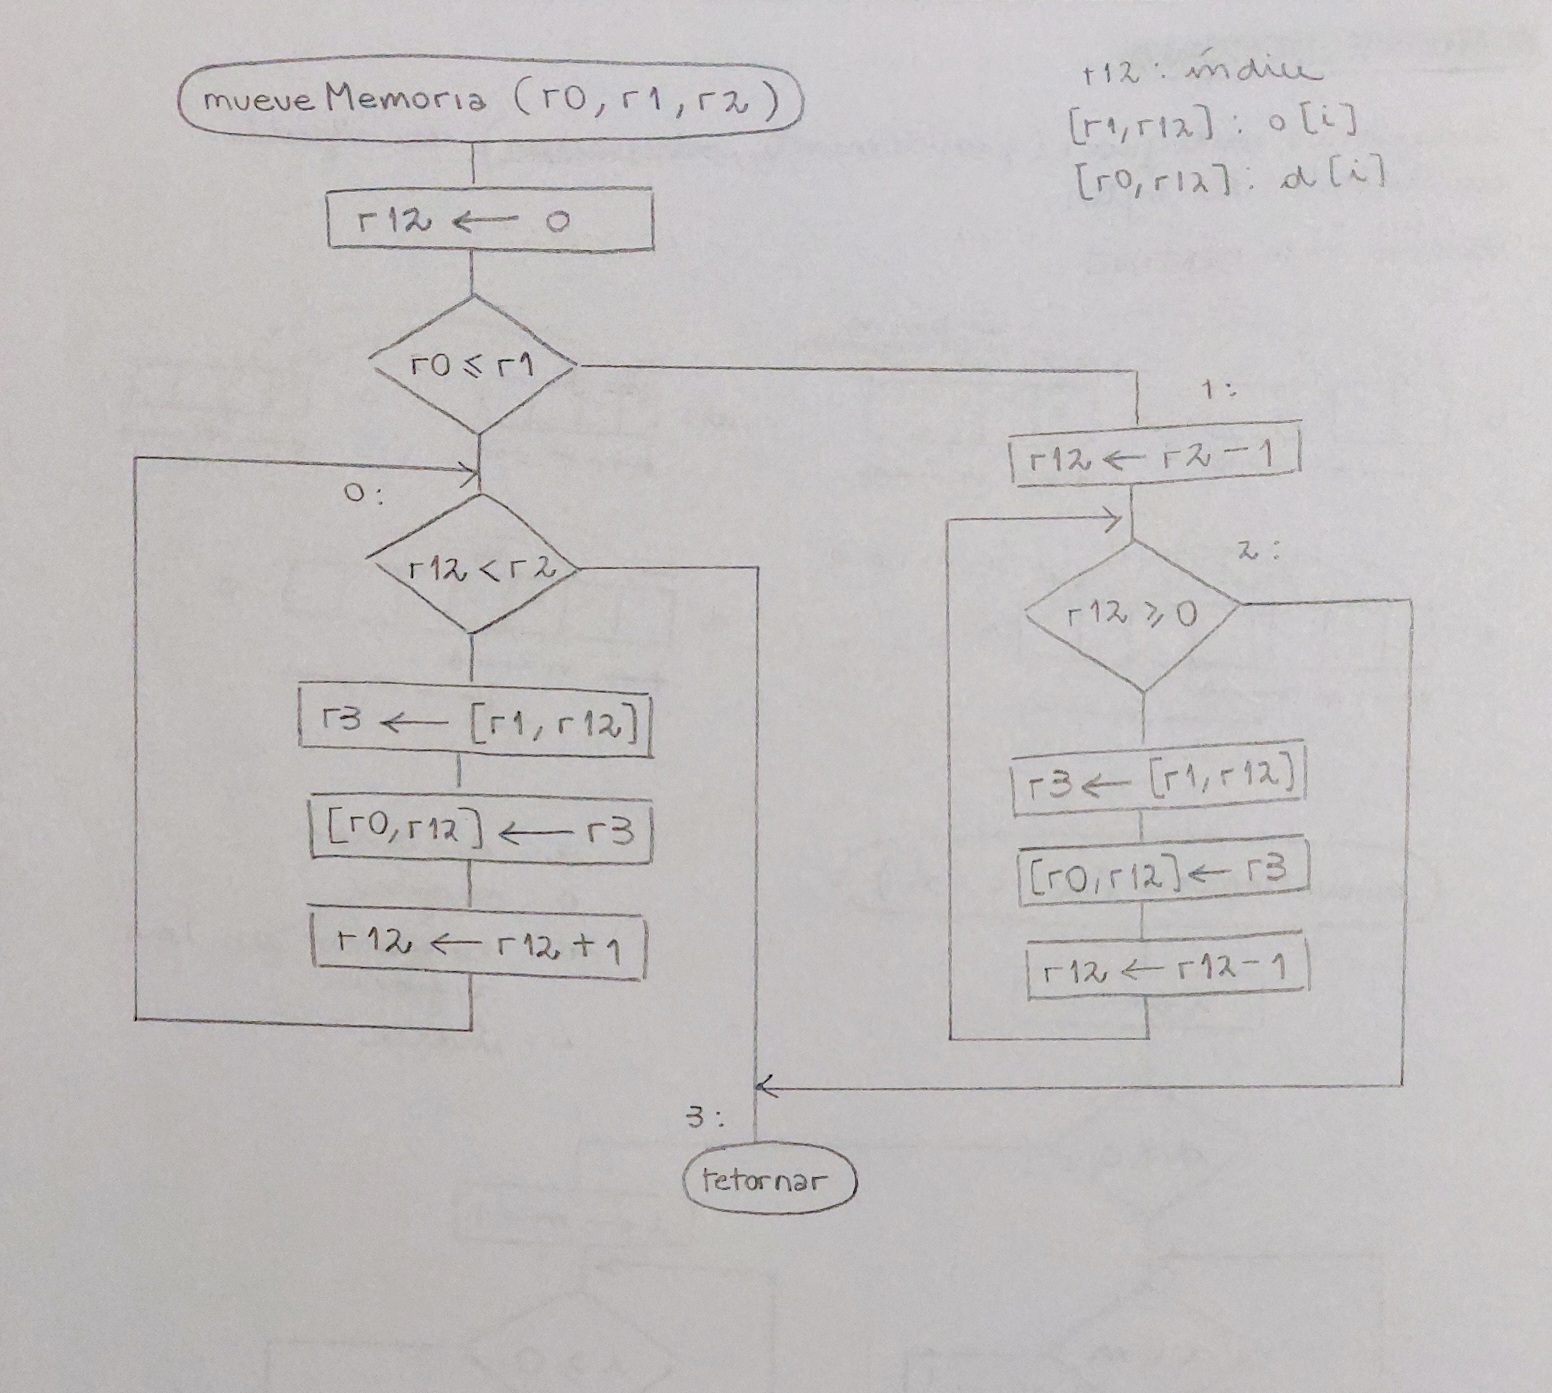 mueveMemoria (r0, r1, r2)
r12 : índice
[r1, r12] : o[i]
[r0, r12] : d[i]
r12 ← 0
r0 ≤ r1
0 :
r12 < r2
r3 ← [r1, r12]
[r0, r12] ← r3
r12 ← r12 + 1
1 :
r12 ← r2 - 1
2 :
r12 ≥ 0
r3 ← [r1, r12]
[r0, r12] ← r3
r12 ← r12 - 1
3 :
retornar